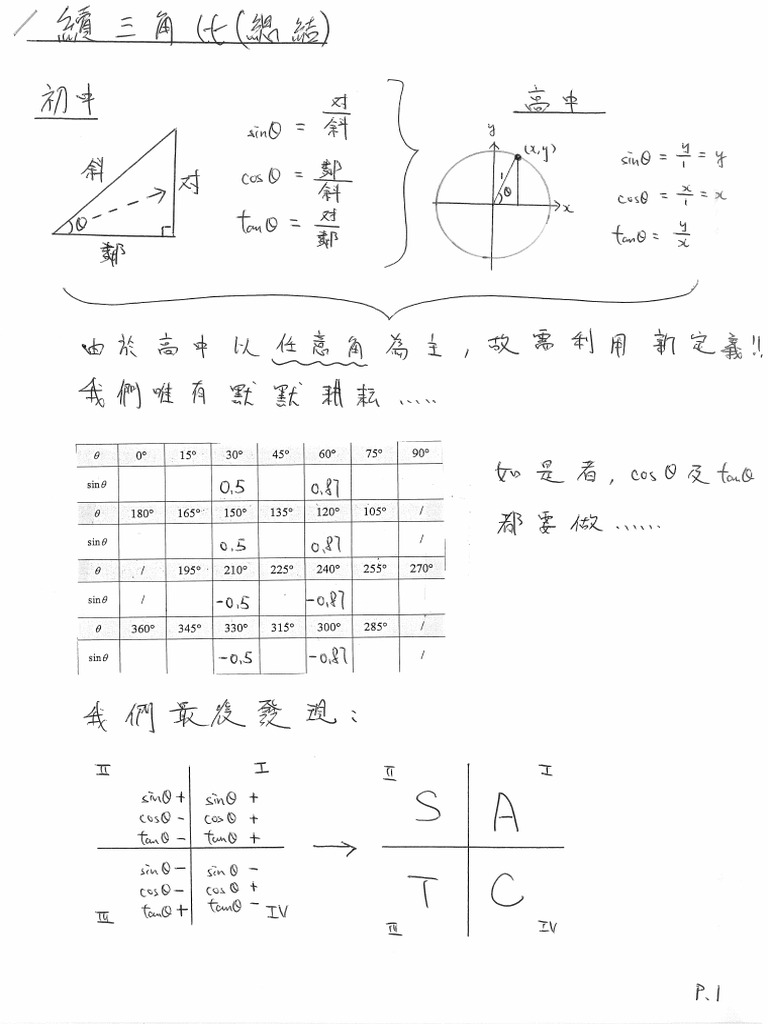 續三角比(總結)
初中
斜
对
θ
鄰
sinθ = 对/斜
cosθ = 鄰/斜
tanθ = 对/鄰
高中
y
(x,y)
1
θ
x
sinθ = y/1 = y
cosθ = x/1 = x
tanθ = y/x
由於高中以任意角為主,故需利用新定義!!
我們唯有默默耕耘.....
θ 0° 15° 30° 45° 60° 75° 90°
sinθ 0.5 0.87
θ 180° 165° 150° 135° 120° 105° /
sinθ 0.5 0.87 /
θ / 195° 210° 225° 240° 255° 270°
sinθ / -0.5 -0.87
θ 360° 345° 330° 315° 300° 285° /
sinθ -0.5 -0.87 /
如是者,cosθ及tanθ
都要做......
我們最後發現:
II I
sinθ + sinθ +
cosθ - cosθ +
tanθ - tanθ +
sinθ - sinθ -
cosθ - cosθ +
tanθ + tanθ -
III IV
II I
S A
T C
III IV
P.1